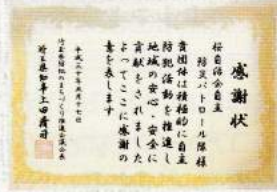 感謝状
桜自治会自主
防災パトロール隊様
貴団体は積極的に自主
防犯活動を推進し
地域の安心・安全に
貢献をされました
よってここに感謝の
意を表します
平成三十年五月十七日
埼玉県防犯のまちづくり推進会議会長
埼玉県知事上田清司